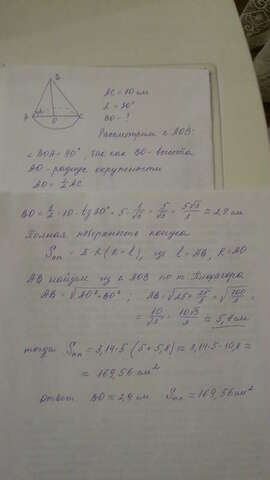 B
A
O
C
AC = 10 см
L = 30°
BO = ?
Рассмотрим △ AOB:
∠ BOA = 90°, так как BO - высота
AO - радиус окружности
AO = 1/2 AC
BO = 1/2 · 10 · tg 30° = 5 · 1/√3 = 5/√3 = 5√3/3 ≈ 2,9 см
Полная поверхность конуса
Sпп = π · R (R + l), где l = AB, R = AO
AB найдем из △ AOB по т. Пифагора
AB = √AO² + BO² ; AB = √25 + 25/3 = √100/3 ;
= 10/√3 = 10√3/3 ≈ 5,8 см
тогда Sпп = 3,14 · 5 (5 + 5,8) = 3,14 · 5 · 10,8 =
= 169,56 см²
Ответ BO = 2,9 см Sпп = 169,56 см²